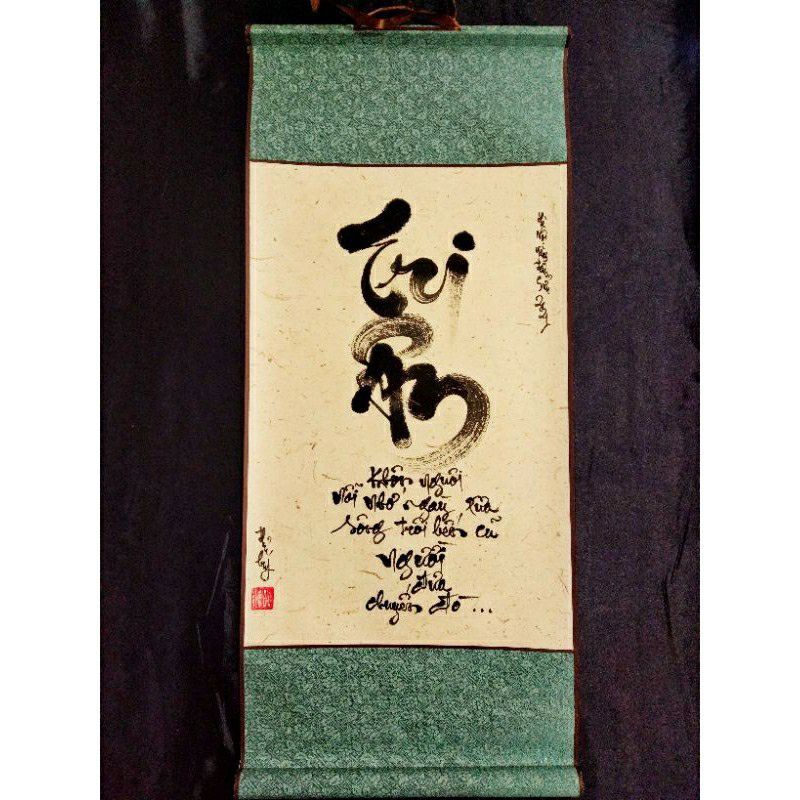 Tri
Ân
Khôn nguôi
nỗi nhớ ngày xưa
sông trôi bến cũ
người
đưa
chuyến đò ...